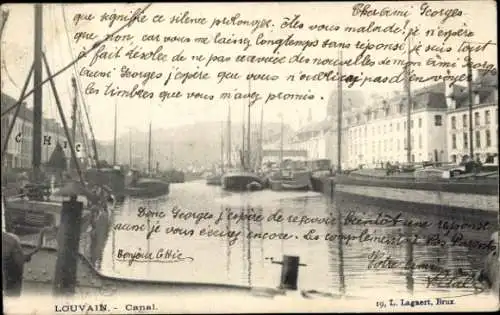 Cher ami Georges
que signifie ce silence prolongé. Etes vous malade, je n'espère
non, car vous me laissez longtemps sans réponse, je suis tout
à fait désolée de ne pas recevoir des nouvelles de mon ami
Georges j'espère que vous n'oublierez pas de m'envoyer
les timbres que vous m'avez promis.
Donc Georges j'espère de recevoir bientôt une réponse
aussi je vous écrirez encore. Les compliments de vos parents
Bonjour
Votre amie
LOUVAIN. - Canal.
19, L. Lagaert, Brux.